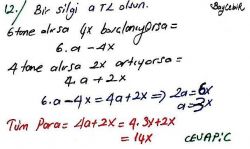 12.) Bir silgi a TL olsun.
*BayÇelik
6 tane alırsa 4x borçlanıyorsa =
6.a - 4x
4 tane alırsa 2x artıyorsa =
4.a + 2x
6.a - 4x = 4a + 2x => 2a = 6x
a = 3x
Tüm Para = 4a + 2x = 4.3x + 2x
= 14x
CEVAP: C